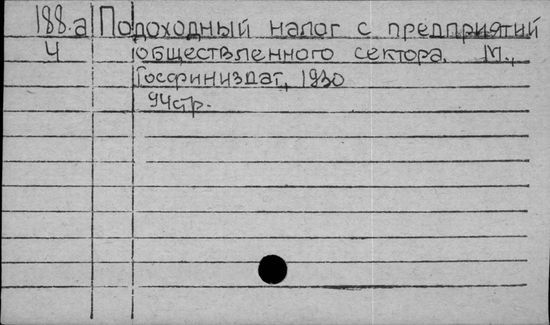 188.а Подоходный налог с предприятий
Ч общественного сектора. М.,
Госфиниздат, 1930
94стр.